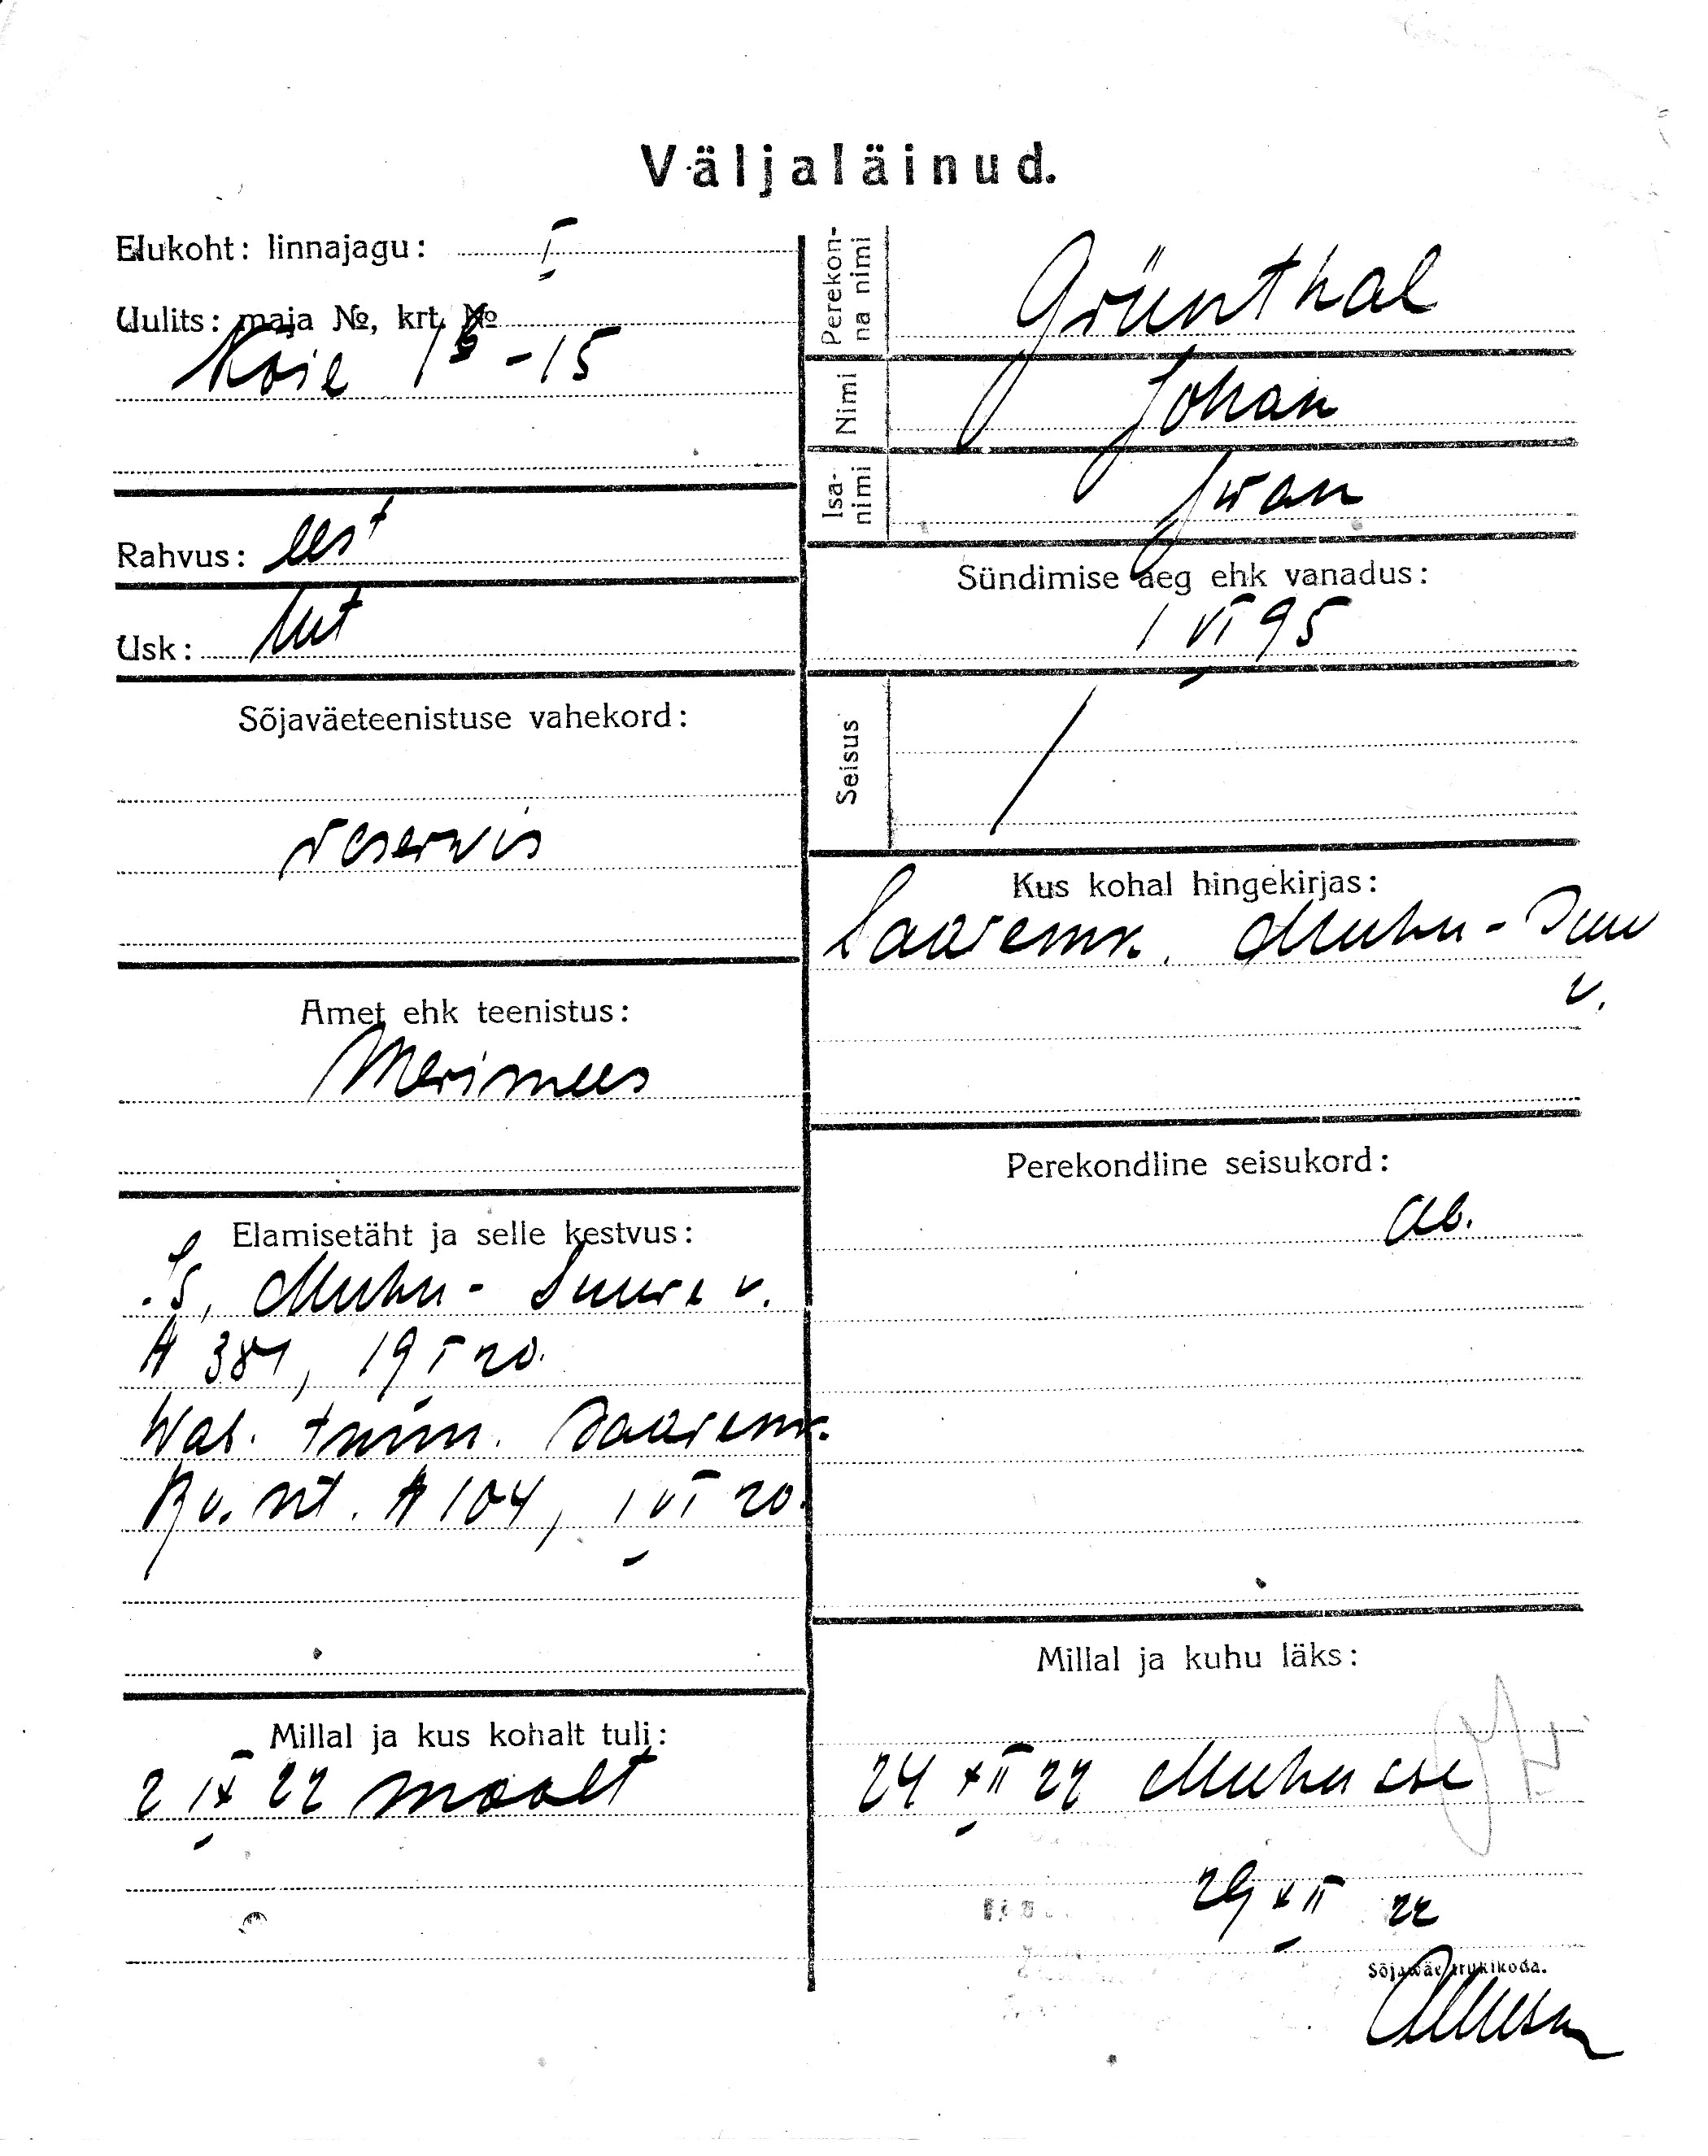 Väljaläinud.
Elukoht: linnajagu: I
Uulits: maja №, krt. №
Köie 13-15
Rahvus: eest
Usk: lut
Sõjaväeteenistuse vahekord:
reservis
Amet ehk teenistus:
Merimees
Elamisetäht ja selle kestvus:
Is, Muhu- Suure v.
№ 381, 19 I 20.
Saaremr.
№ 104, 1 VI 20.
Millal ja kus kohalt tuli:
2 IX 22 maalt
Perekon-
na nimi
Grünthal
Nimi
Johan
Isa-
nimi
Iwan
Sündimise aeg ehk vanadus:
1 VI 95
Seisus
/
Kus kohal hingekirjas:
Saaremr. Muhu-Suu
v.
Perekondline seisukord:
ab.
Millal ja kuhu läks:
24 XII 22 Muhusse
29 XII 22
Sõjawäe trükikoda.